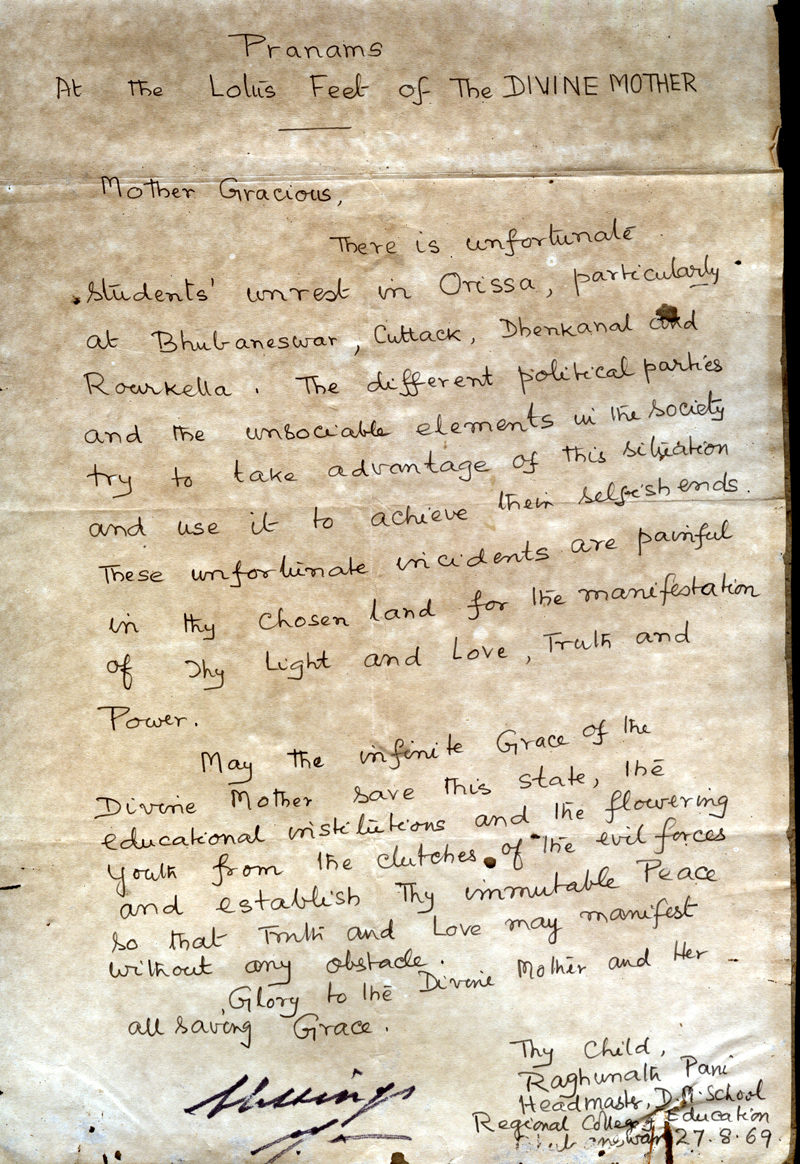 Pranams
At the Lotus Feet of The DIVINE MOTHER
Mother Gracious,
There is unfortunate
students' unrest in Orissa, particularly
at Bhubaneswar, Cuttack, Dhenkanal and
Rourkella. The different political parties
and the unsociable elements in the society
try to take advantage of this situation
and use it to achieve their selfish ends.
These unfortunate incidents are painful
in thy chosen land for the manifestation
of Thy Light and Love, Truth and
Power.
May the infinite Grace of the
Divine Mother save this state, the
educational institutions and the flowering
youth from the clutches of the evil forces
and establish Thy immutable Peace
so that Truth and Love may manifest
without any obstacle.
Glory to the Divine Mother and Her
all saving Grace.
Thy Child,
Raghunath Pani
Headmaster, D.M. School
Regional College of Education
Bhubaneswar 27.8.69
blessings